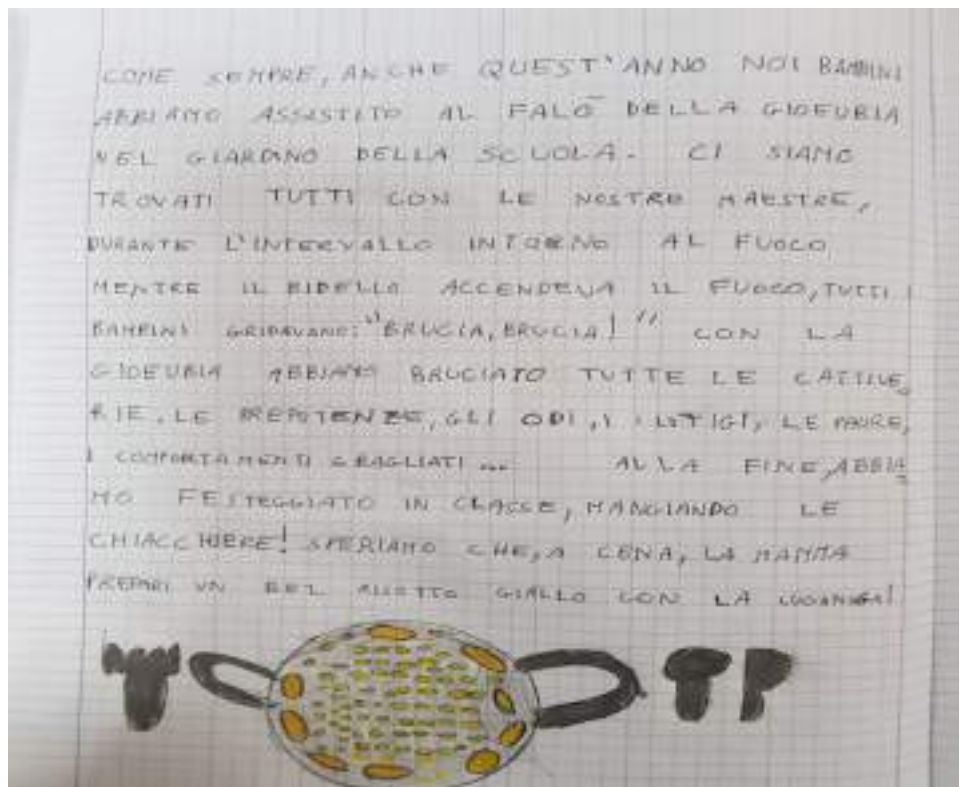 COME SEMPRE, ANCHE QUEST'ANNO NOI BAMBINI
ABBIAMO ASSISTITO AL FALÒ DELLA GIOEUBIA
NEL GIARDINO DELLA SCUOLA. CI SIAMO
TROVATI TUTTI CON LE NOSTRE MAESTRE,
DURANTE L'INTERVALLO INTORNO AL FUOCO
MENTRE IL BIDELLO ACCENDEVA IL FUOCO, TUTTI I
BAMBINI GRIDAVANO: "BRUCIA, BRUCIA!" CON LA
GIOEUBIA ABBIAMO BRUCIATO TUTTE LE CATTIVE
RIE. LE PREPOTENZE, GLI ODI, I LITIGI, LE PAURE,
I COMPORTAMENTI SBAGLIATI... ALLA FINE, ABBIA
MO FESTEGGIATO IN CLASSE, MANGIANDO LE
CHIACCHIERE! SPERIAMO CHE, A CENA, LA MAMMA
PREPARI UN BEL RISOTTO GIALLO CON LA LUGANIGA!